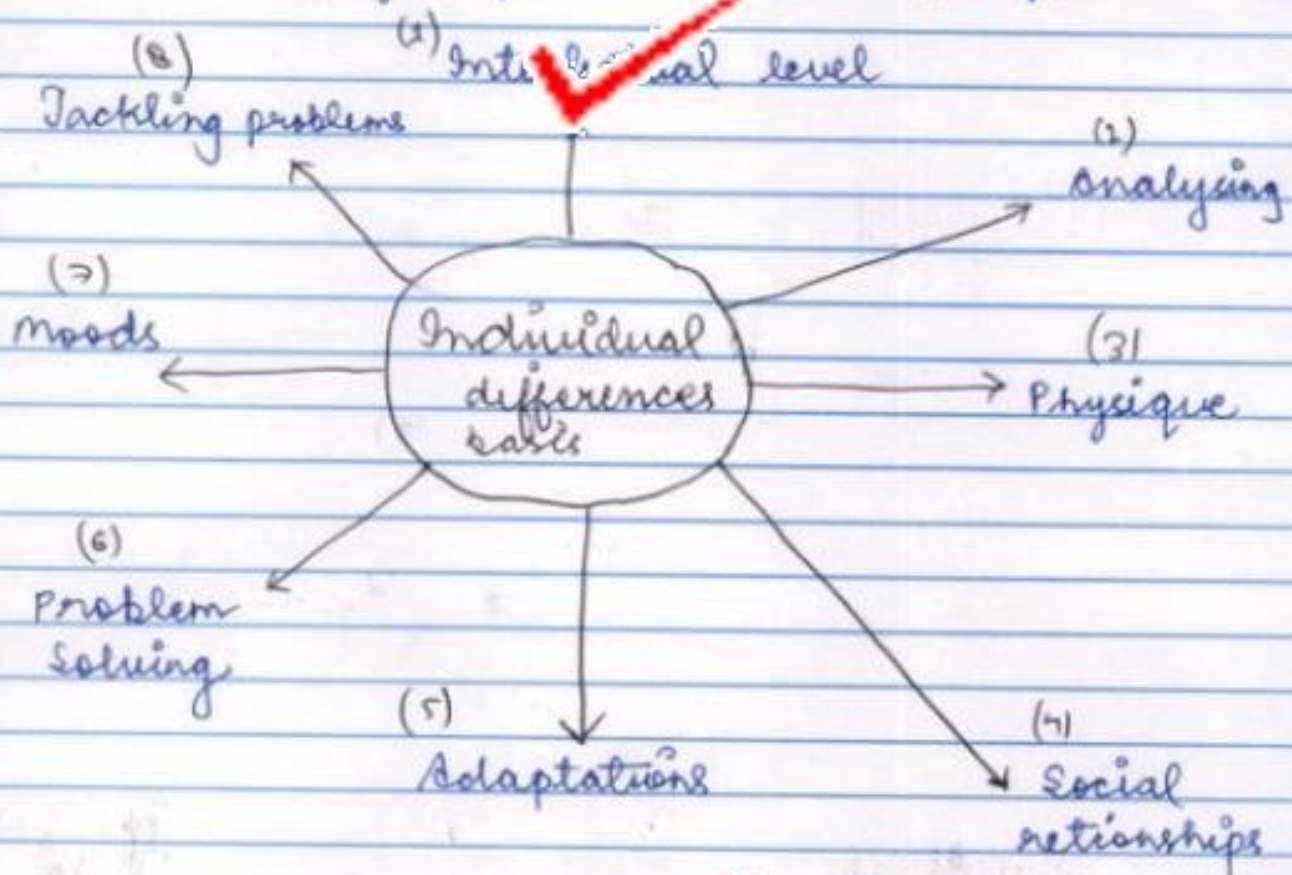 (1)
level
(8)
Tackling problems
(2)
Analysing
(7)
Moods
Individual
differences
basis
(3)
Physique
(6)
Problem
Solving
(5)
Adaptations
(4)
Social
retionships